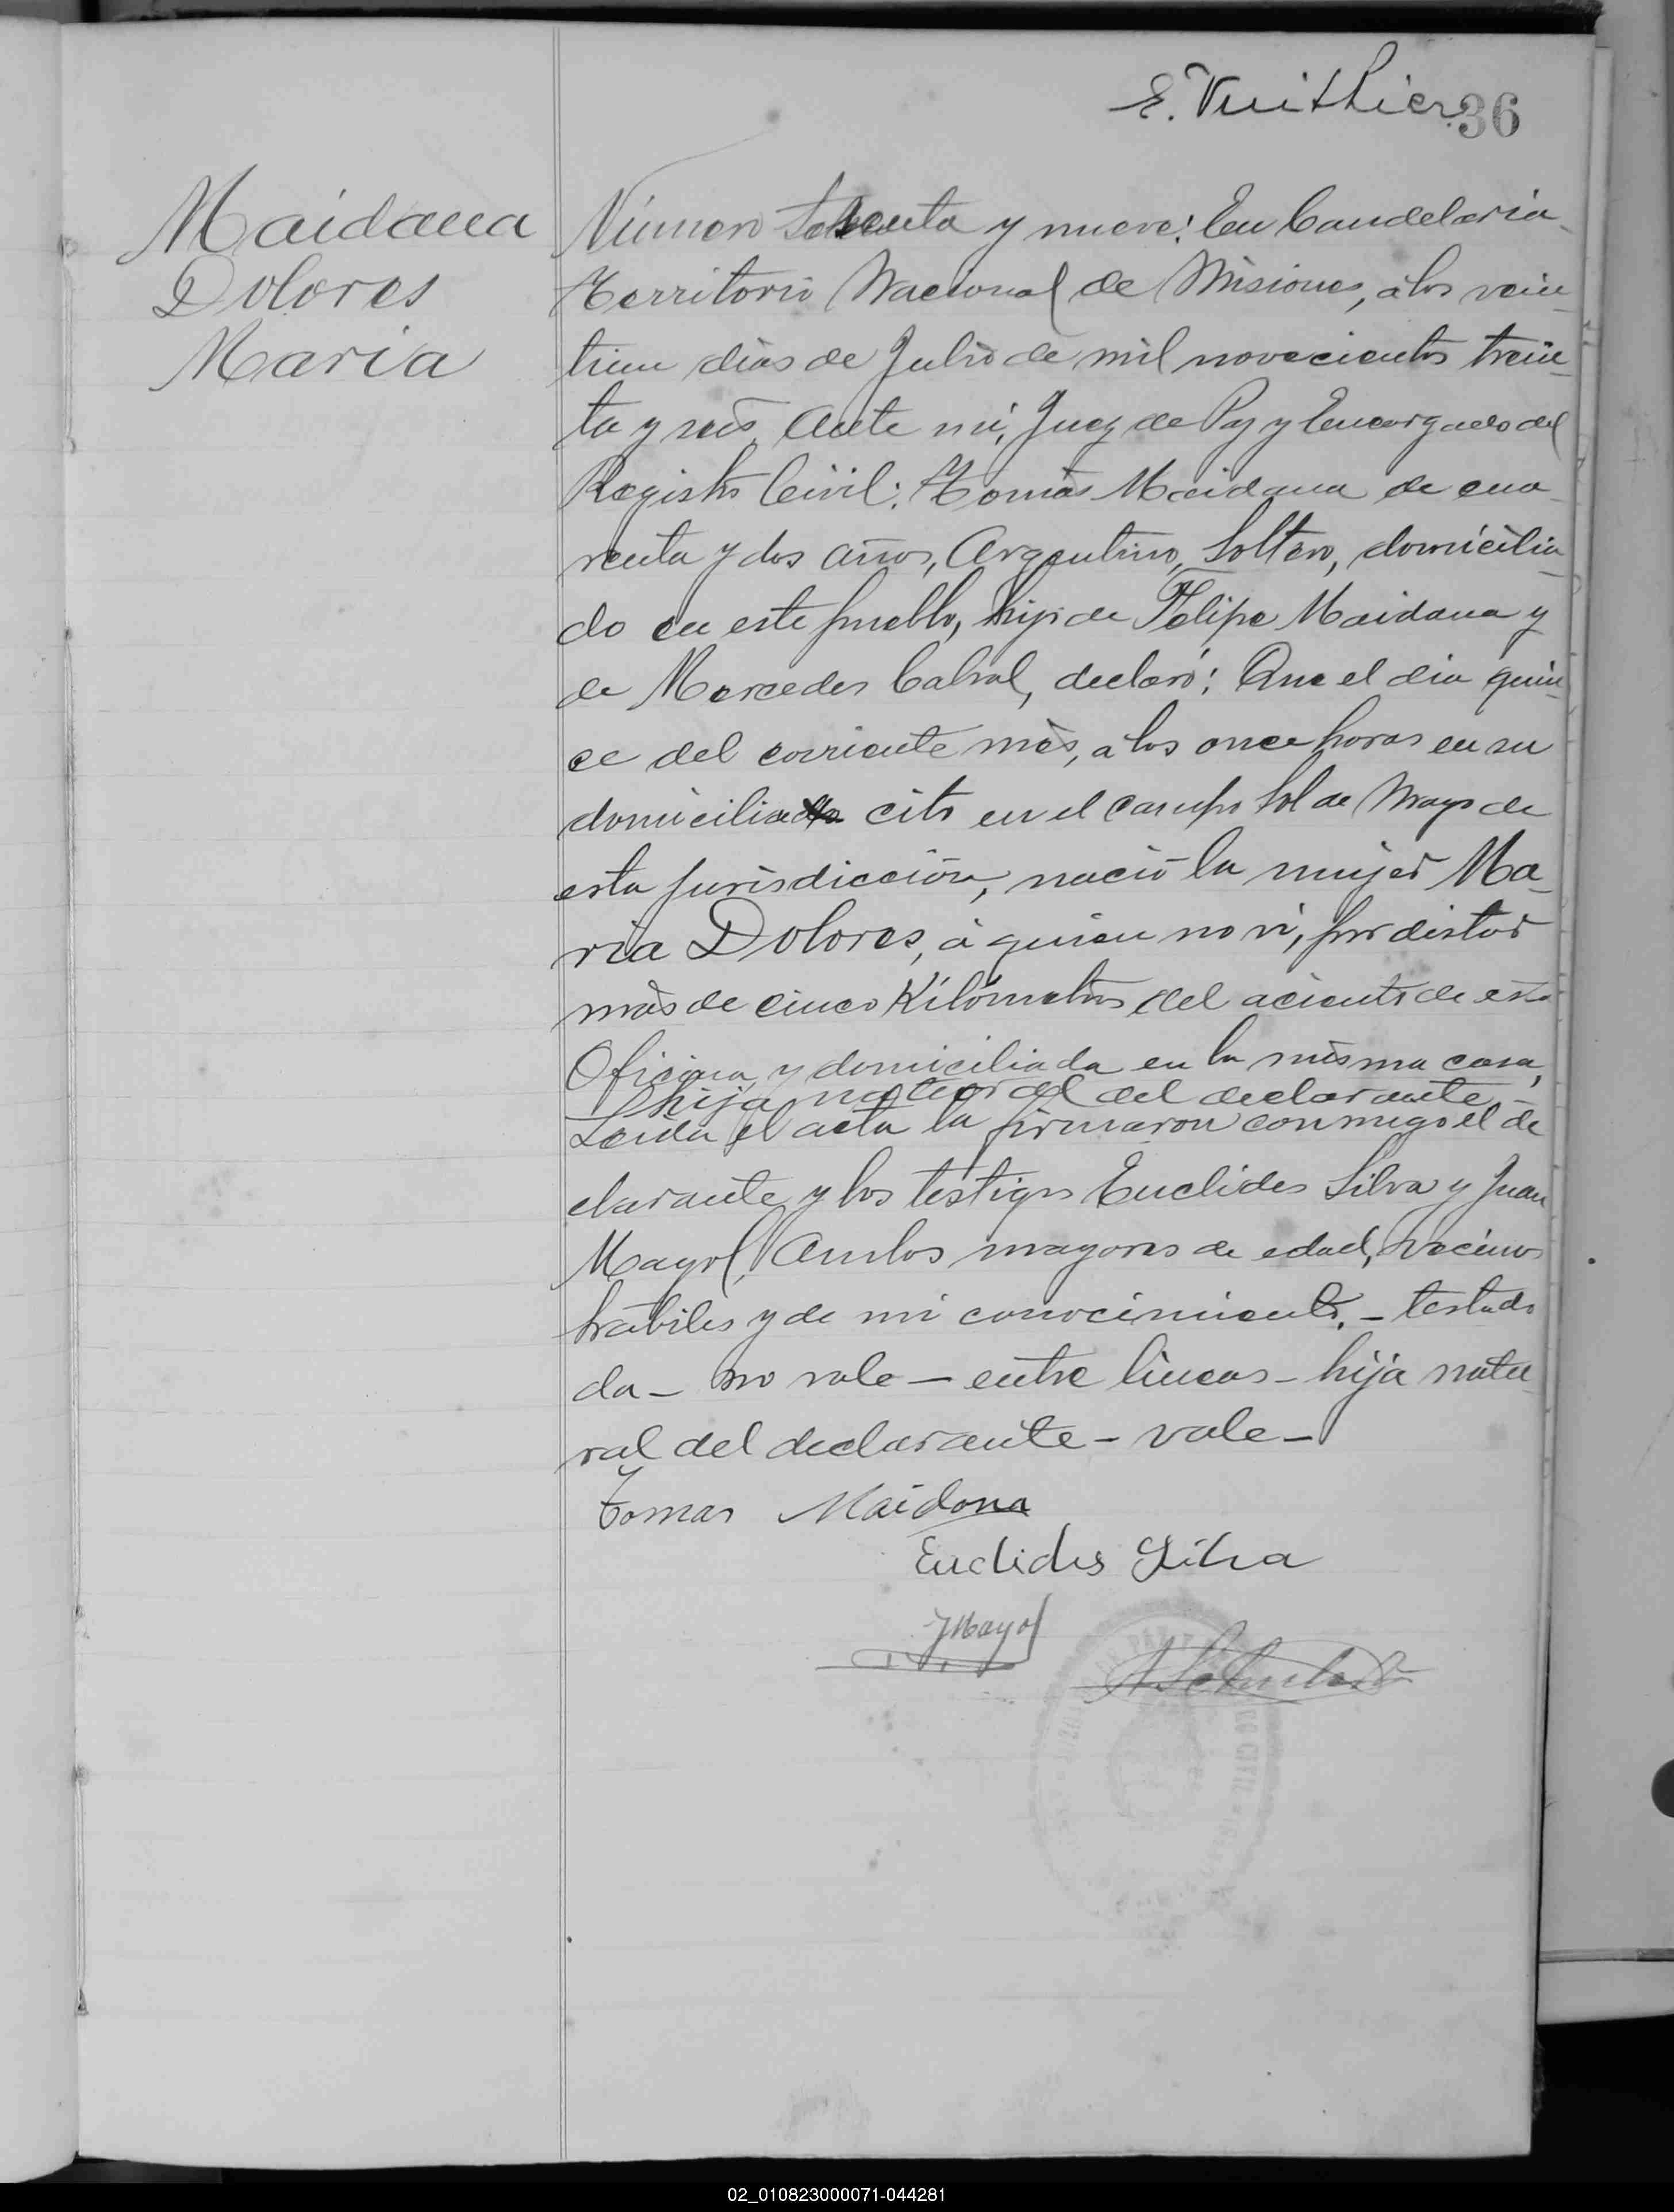 E. Vuithier. 36
Maidana
Dolores
Maria
Número y nueve: En Candelaria
Territorio Nacional de Misiones, á los vein
tiun dias de Julio de mil novecientos trein
ta y seis, Ante mi, Juez de Paz y Encargado del
Registro Civil: Tomás Maidana de cua
renta y dos años, Argentino, Soltero, domicilia
do en este pueblo, hijo de Felipe Maidana y
de Mercedes Cabral, declaró: Que el dia quin
ce del corriente mes, á las once horas en su
domicilio cito en el campo Sol de Mayo de
esta jurisdicción, nació la mujer Ma
ria Dolores, á quien no ví, por distar
más de cinco Kilómetros del aciento de esta
Oficina y domiciliada en la misma casa,
hija natural del declarante -
Leida el acta la firmaron conmigo el de
clarante y los testigos Euclides Silva y Juan
Mayol, Ambos mayores de edad, vecinos
hábiles y de mi conocimiento. - testado
da - no vale - entre lineas - hija natu
ral del declarante - vale -
Tomas Maidana
Euclides Silva
J Mayol